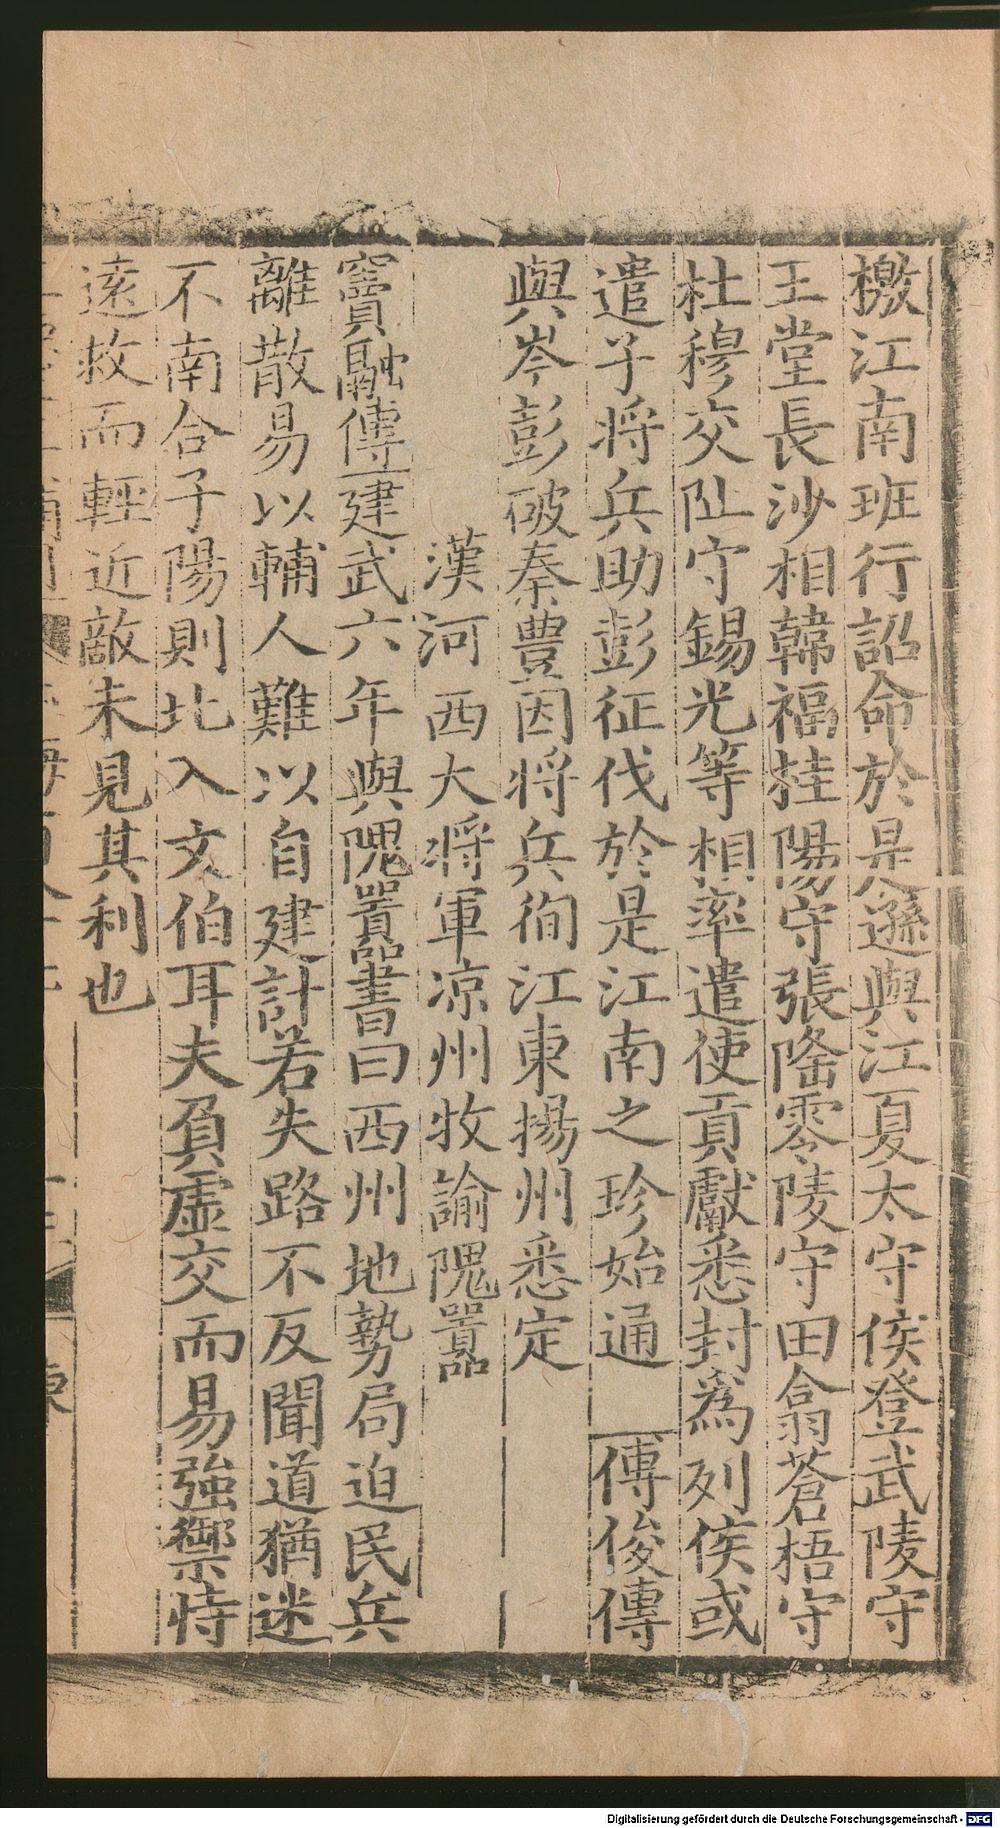 檄江南班行詔命於是遜與江夏太守侯登武陵守
王堂長沙相韓福桂陽守張隆零陵守田翕蒼梧守
杜穆交阯守錫光等相率遣使貢獻悉封爲列侯或
遣子將兵助彭征伐於是江南之珍始通 傅俊傳
與岑彭破秦豐因將兵徇江東揚州悉定
漢河西大將軍凉州牧諭隗囂
竇融傳建武六年與隗囂書曰西州地勢局迫民兵
離散易以輔人難以自建計若失路不反聞道猶迷
不南合子陽則北入文伯耳夫負虛交而易強禦恃
遠救而輕近敵未見其利也
Digitalisierung gefördert durch die Deutsche Forschungsgemeinschaft - DFG